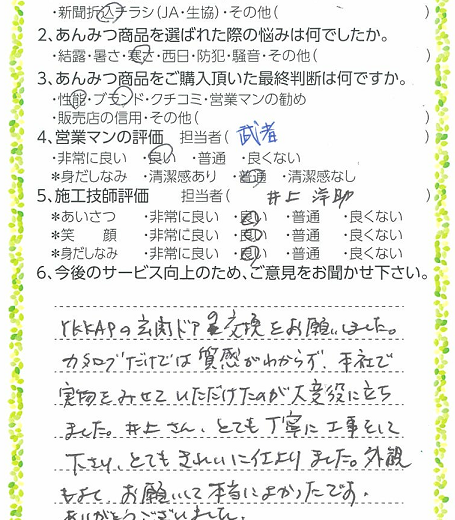 ・新聞折込チラシ（JA・生協）・その他（　　　）
2、あんみつ商品を選ばれた際の悩みは何でしたか。
・結露・暑さ・寒さ・西日・防犯・騒音・その他（　　　）
3、あんみつ商品をご購入頂いた最終判断は何ですか。
・性能・ブランド・クチコミ・営業マンの勧め
・販売店の信用・その他（　　　）
4、営業マンの評価　担当者（武者　　　）
・非常に良い　・良い　・普通　・良くない
＊身だしなみ　・清潔感あり　・普通　・清潔感なし
5、施工技師評価　担当者（井上 洋助　）
＊あいさつ　・非常に良い　・良い　・普通　・良くない
＊笑　顔　・非常に良い　・良い　・普通　・良くない
＊身だしなみ　・非常に良い　・良い　・普通　・良くない
6、今後のサービス向上のため、ご意見をお聞かせ下さい。
YKKAPの玄関ドアの交換をお願いしました。
カタログだけでは質感がわからず、本社で
実物をみせていただけたのが大変役に立ち
ました。井上さん、とても丁寧に工事をして
下さり、とてもきれいに仕上りました。外観
もよく、お願いして本当によかったです。
ありがとうございました。